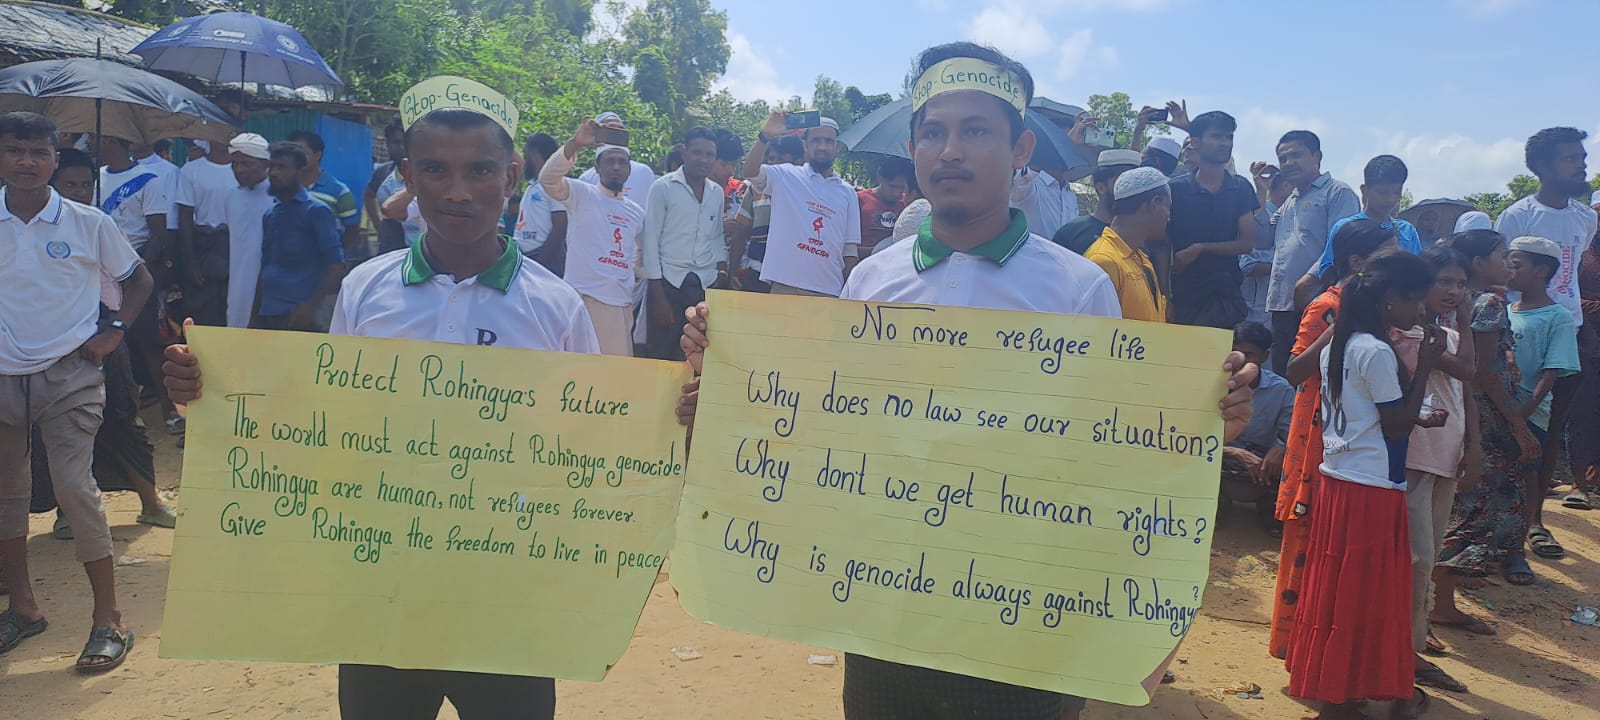 Stop-Genocide
Stop-Genocide
Protect Rohingya's future
The world must act against Rohingya genocide
Rohingya are human, not refugees forever.
Give Rohingya the freedom to live in peace
No more refugee life
Why does no law see our situation?
Why dont we get human rights?
Why is genocide always against Rohingya?
STOP
GENOCIDE
STOP
GENOCIDE
GENOCIDE
R